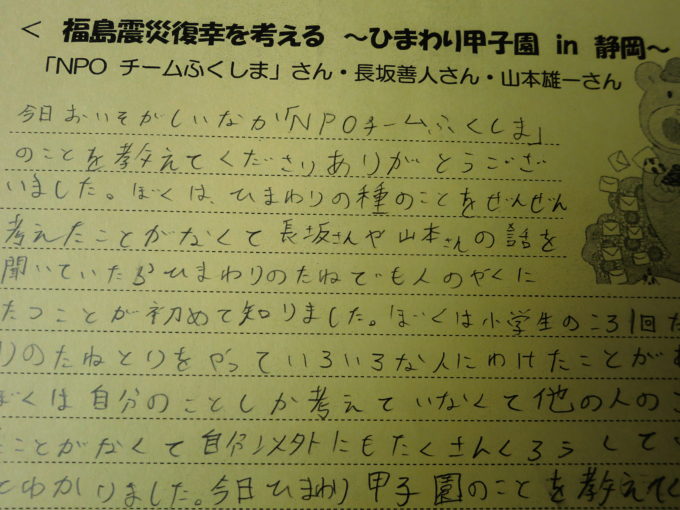 < 福島震災復幸を考える ~ひまわり甲子園 in 静岡~
「NPO チームふくしま」さん・長坂善人さん・山本雄一さん
今日おいそがしいなか「NPOチームふくしま」
のことを教えてくださりありがとうござ
いました。ぼくは、ひまわりの種のことをぜんぜん
考えたことがなくて長坂さんや山本さんの話を
聞いていたらひまわりのたねでも人のやくに
たつことが初めて知りました。ぼくは小学生のころ1回た
りのたねとりをやっていろいろな人にわけたことがあ
ぼくは自分のことしか考えていなくて他の人のこ
ことがなくて自分以外にもたくさんくろうして
とわかりました。今日ひまわり甲子園のことを教えてく